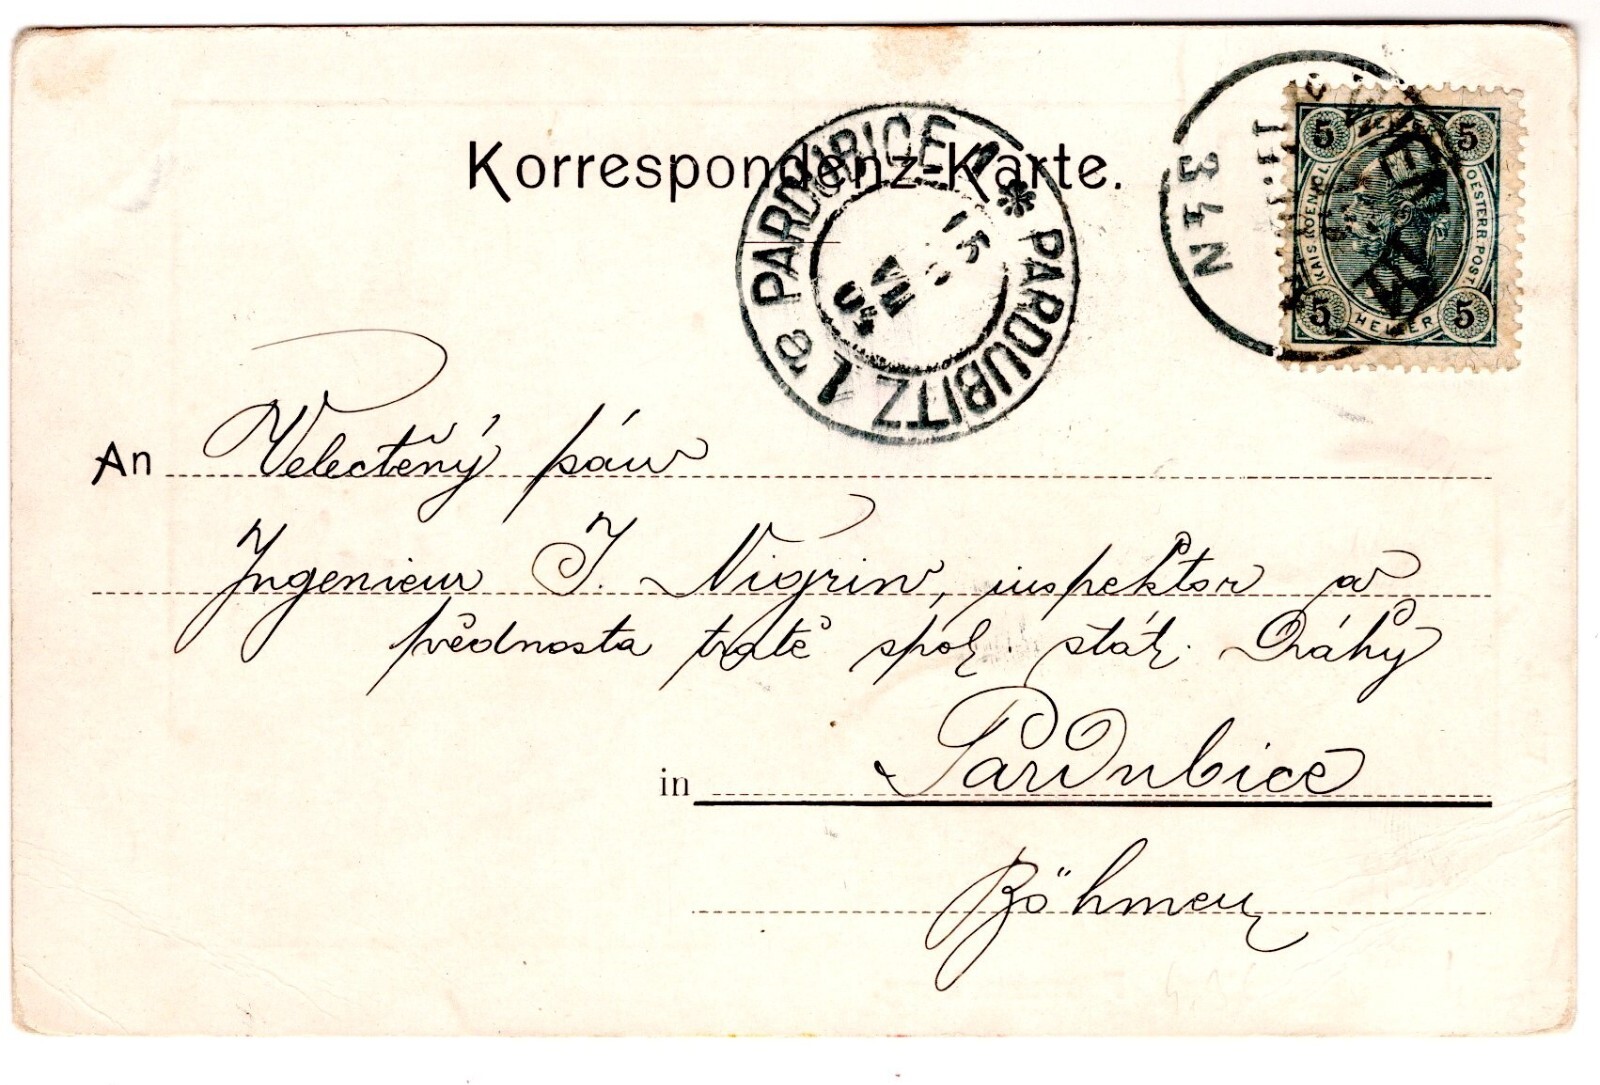 Korrespondenz-Karte.
PARDUBICE 1 * PARDUBITZ 1
15
VIII
3 4 N
5 HELLER 5
KAIS. KOENIGL. OESTERR. POST
5 HELLER 5
An Velectěný pán
Ingenieur J. Nigrin, inspektor a
přednosta tratě spol. stát. Dráhy
in Pardubice
Böhmen